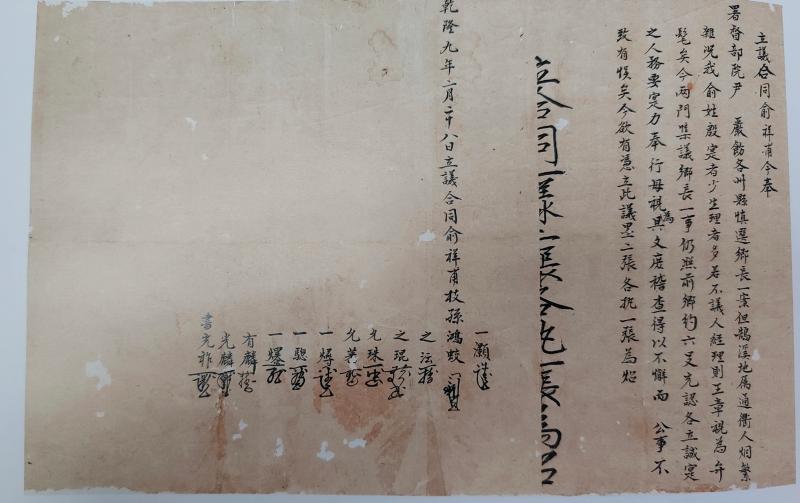 立議合同俞祥甫今奉
署督部院尹　嚴飭各州縣慎選鄉長一案但鵠溪地属通衢人烟繁
雜況我俞姓殷寔者少生理者多若不議人経理則王章視為弁
髦矣今两門集議鄉長一事仍照前鄉約六支充認各立誠寔
之人務要寔力奉行毋視為具文庶稽查得以不懈而　公事不
致有悞矣今欲有憑立此議墨二張各执一張為炤
立合同一樣二張各执一張為炤
乾隆九年二月二十八日立議合同俞祥甫枝孫鴻蛟
一灝
之沄
之琨
允珠
允
一
一煇
一
有麟
光麟
書光祚